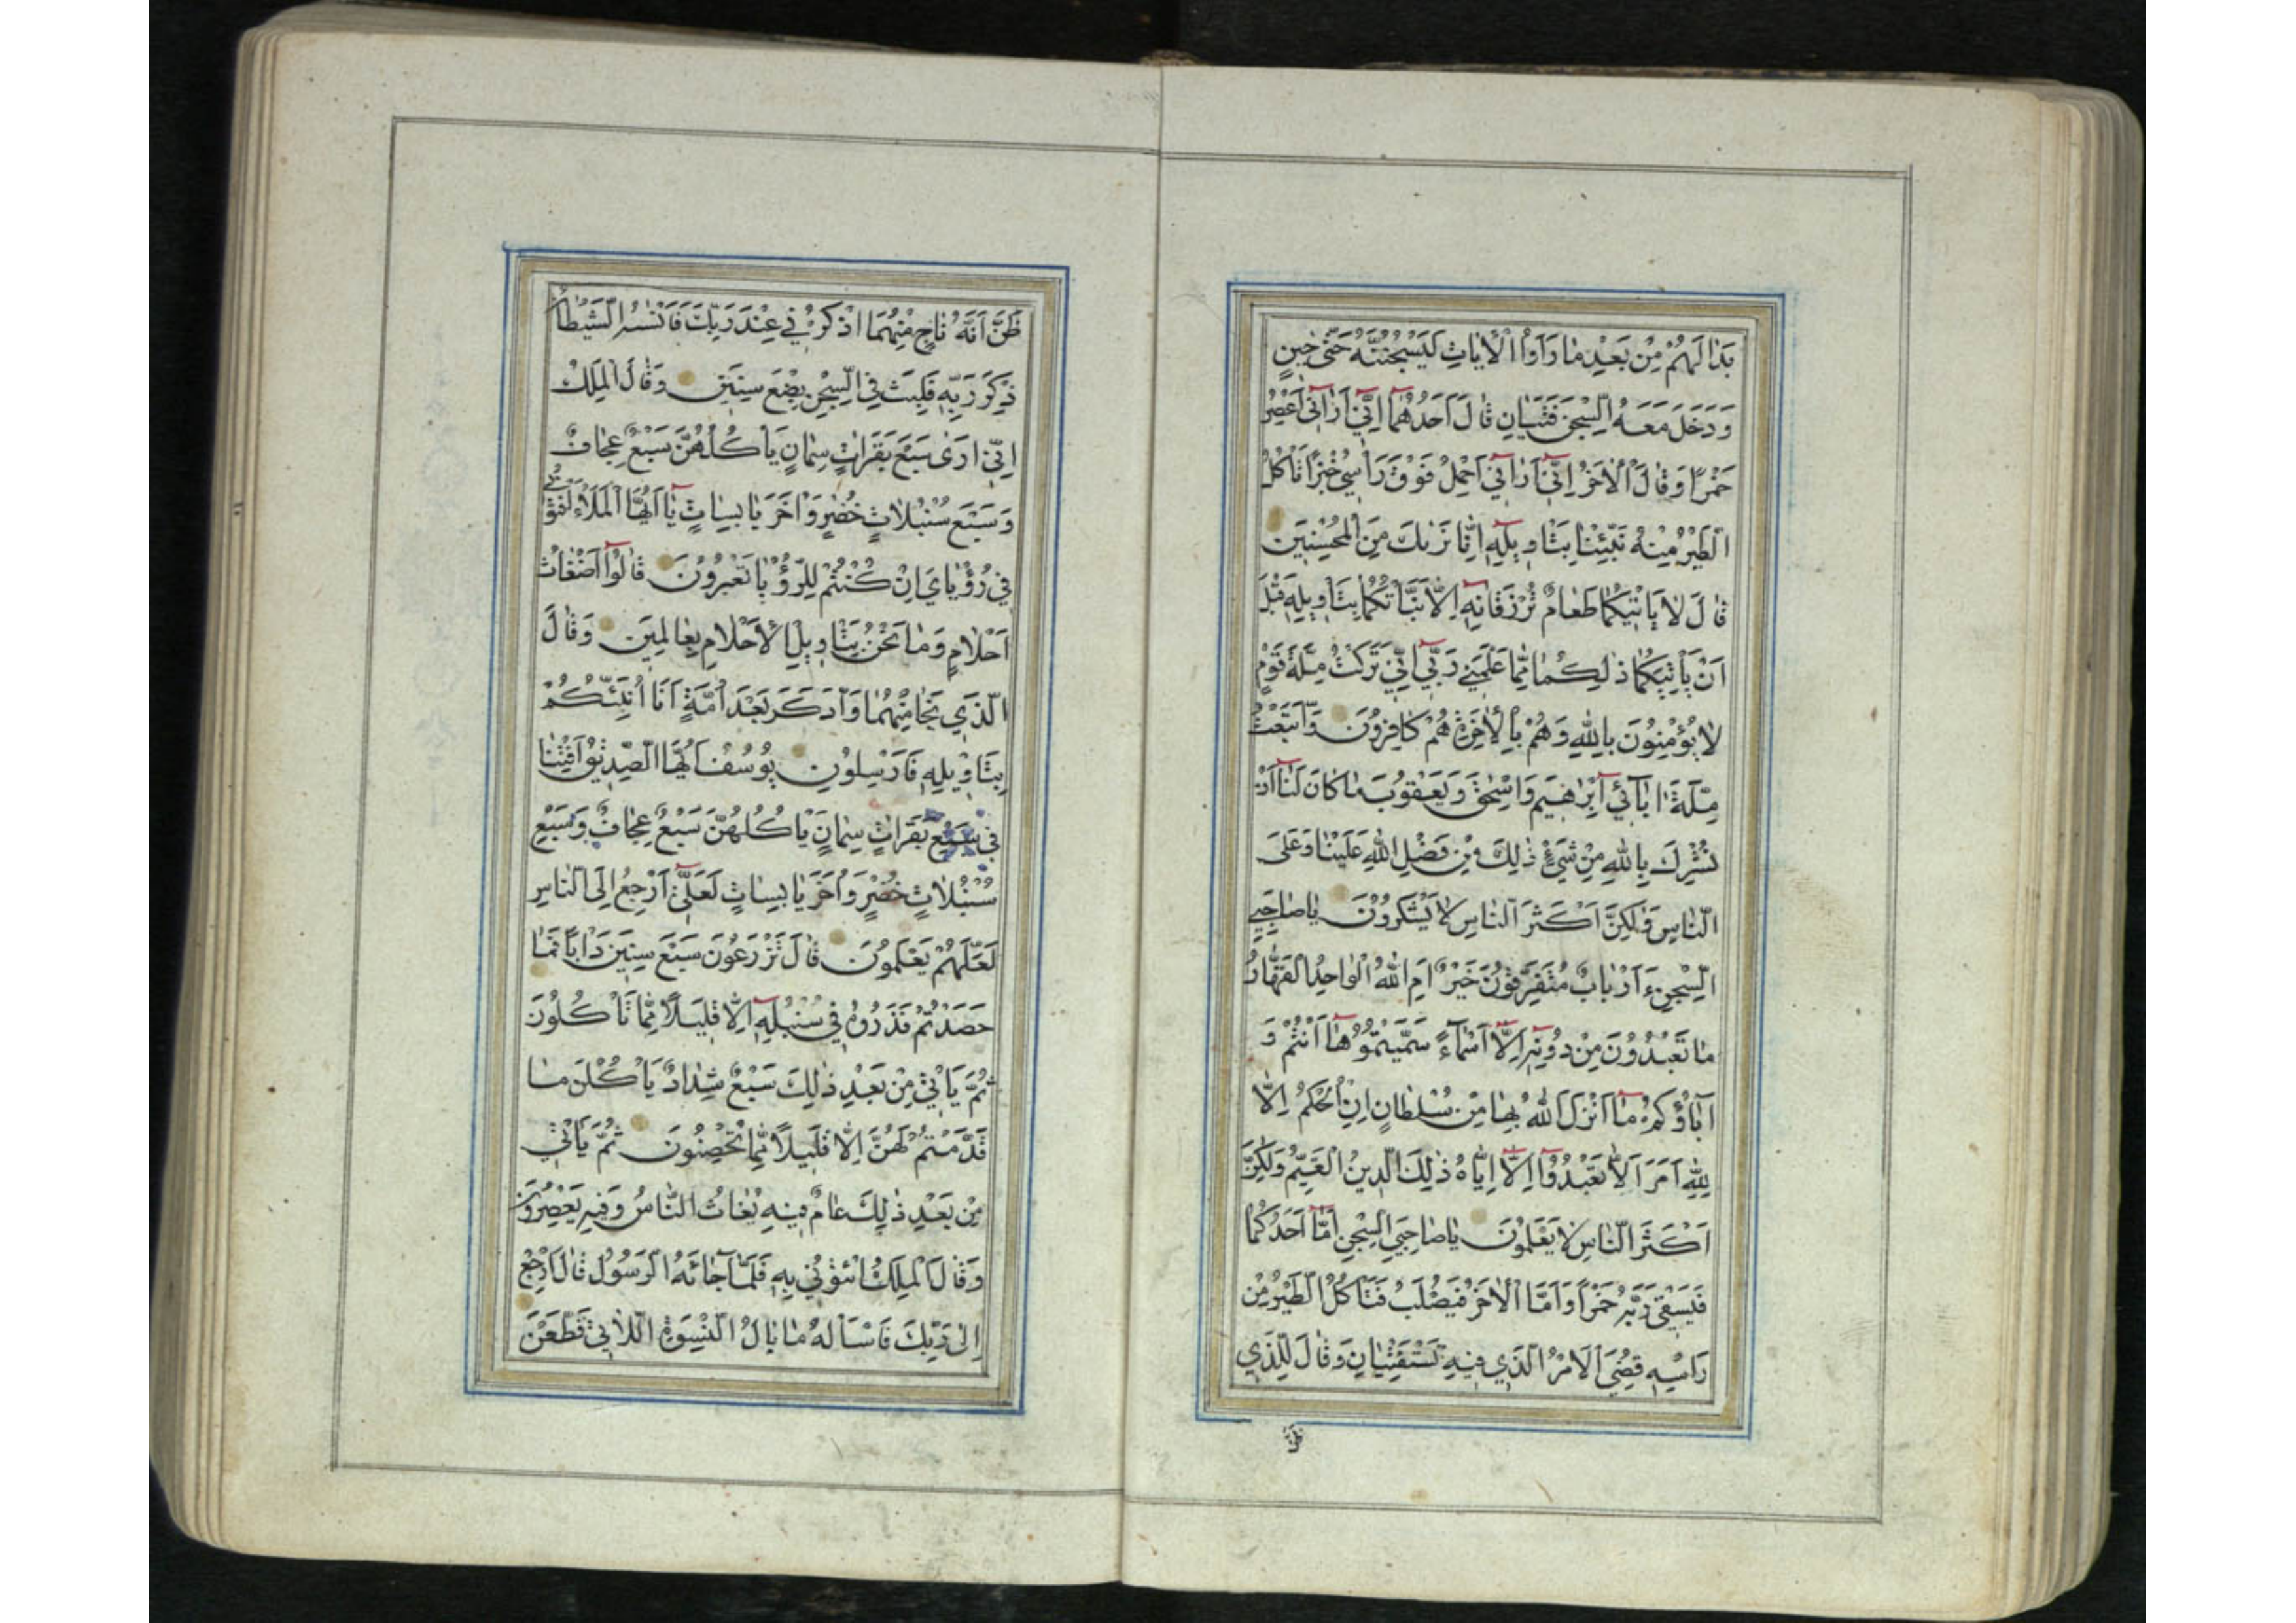 بَدٰا لَهُمْ مِنْ بَعْدِ مٰا رَاَوُا الْاٰيٰاتِ لَيَسْجُنُنَّهُ حَتّٰى حٖينٍ
وَدَخَلَ مَعَهُ السِّجْنَ فَتَيٰانِ قٰالَ اَحَدُهُمٰٓا اِنّٖٓي اَرٰانٖٓي اَعْصِرُ
خَمْرًا وَقٰالَ الْاٰخَرُ اِنّٖٓي اَرٰانٖٓي اَحْمِلُ فَوْقَ رَاْسٖي خُبْزًا تَاْكُلُ
الطَّيْرُ مِنْهُ نَبِّئْنٰا بِتَاْوٖيلِهٖٓ اِنّٰا نَرٰيكَ مِنَ الْمُحْسِنٖينَ
قٰالَ لٰا يَاْتٖيكُمٰا طَعٰامٌ تُرْزَقٰانِهٖٓ اِلّٰا نَبَّاْتُكُمٰا بِتَاْوٖيلِهٖ قَبْلَ
اَنْ يَاْتِيَكُمٰا ذٰلِكُمٰا مِمّٰا عَلَّمَنٖي رَبّٖٓي اِنّٖي تَرَكْتُ مِلَّةَ قَوْمٍ
لٰا يُؤْمِنُونَ بِاللّٰهِ وَهُمْ بِالْاٰخِرَةِ هُمْ كٰافِرُونَ وَاتَّبَعْتُ
مِلَّةَ اٰبٰٓائٖٓي اِبْرٰهٖيمَ وَاِسْحٰقَ وَيَعْقُوبَ مٰا كٰانَ لَنٰٓا اَنْ
نُشْرِكَ بِاللّٰهِ مِنْ شَيْءٍ ذٰلِكَ مِنْ فَضْلِ اللّٰهِ عَلَيْنٰا وَعَلَى
النّٰاسِ وَلٰكِنَّ اَكْثَرَ النّٰاسِ لٰا يَشْكُرُونَ يٰا صٰاحِبَيِ
السِّجْنِ ءَاَرْبٰابٌ مُتَفَرِّقُونَ خَيْرٌ اَمِ اللّٰهُ الْوٰاحِدُ الْقَهّٰارُ
مٰا تَعْبُدُونَ مِنْ دُونِهٖٓ اِلّٰٓا اَسْمٰٓاءً سَمَّيْتُمُوهٰٓا اَنْتُمْ وَ
اٰبٰاؤُكُمْ مٰٓا اَنْزَلَ اللّٰهُ بِهٰا مِنْ سُلْطٰانٍ اِنِ الْحُكْمُ اِلّٰا
لِلّٰهِ اَمَرَ اَلّٰا تَعْبُدُوٓا اِلّٰٓا اِيّٰاهُ ذٰلِكَ الدّٖينُ الْقَيِّمُ وَلٰكِنَّ
اَكْثَرَ النّٰاسِ لٰا يَعْلَمُونَ يٰا صٰاحِبَيِ السِّجْنِ اَمّٰٓا اَحَدُكُمٰا
فَيَسْقٖي رَبَّهُ خَمْرًا وَاَمَّا الْاٰخَرُ فَيُصْلَبُ فَتَاْكُلُ الطَّيْرُ مِنْ
رَاْسِهٖ قُضِيَ الْاَمْرُ الَّذٖي فٖيهِ تَسْتَفْتِيٰانِ وَقٰالَ لِلَّذٖي
ظَنَّ
ظَنَّ اَنَّهُ نٰاجٍ مِنْهُمَا اذْكُرْنٖي عِنْدَ رَبِّكَ فَاَنْسٰيهُ الشَّيْطٰانُ
ذِكْرَ رَبِّهٖ فَلَبِثَ فِي السِّجْنِ بِضْعَ سِنٖينَ وَقٰالَ الْمَلِكُ
اِنّٖٓي اَرٰى سَبْعَ بَقَرٰاتٍ سِمٰانٍ يَاْكُلُهُنَّ سَبْعٌ عِجٰافٌ
وَسَبْعَ سُنْبُلٰاتٍ خُضْرٍ وَاُخَرَ يٰابِسٰاتٍ يٰٓا اَيُّهَا الْمَلَاُ اَفْتُونٖي
فٖي رُؤْيٰايَ اِنْ كُنْتُمْ لِلرُّؤْيٰا تَعْبُرُونَ قٰالُوٓا اَضْغٰاثُ
اَحْلٰامٍ وَمٰا نَحْنُ بِتَاْوٖيلِ الْاَحْلٰامِ بِعٰالِمٖينَ وَقٰالَ
الَّذٖي نَجٰا مِنْهُمٰا وَادَّكَرَ بَعْدَ اُمَّةٍ اَنَا اُنَبِّئُكُمْ
بِتَاْوٖيلِهٖ فَاَرْسِلُونِ يُوسُفُ اَيُّهَا الصِّدّٖيقُ اَفْتِنٰا
فٖي سَبْعِ بَقَرٰاتٍ سِمٰانٍ يَاْكُلُهُنَّ سَبْعٌ عِجٰافٌ وَسَبْعِ
سُنْبُلٰاتٍ خُضْرٍ وَاُخَرَ يٰابِسٰاتٍ لَعَلّٖٓي اَرْجِعُ اِلَى النّٰاسِ
لَعَلَّهُمْ يَعْلَمُونَ قٰالَ تَزْرَعُونَ سَبْعَ سِنٖينَ دَاَبًا فَمٰا
حَصَدْتُمْ فَذَرُوهُ فٖي سُنْبُلِهٖٓ اِلّٰا قَلٖيلًا مِمّٰا تَاْكُلُونَ
ثُمَّ يَاْتٖي مِنْ بَعْدِ ذٰلِكَ سَبْعٌ شِدٰادٌ يَاْكُلْنَ مٰا
قَدَّمْتُمْ لَهُنَّ اِلّٰا قَلٖيلًا مِمّٰا تُحْصِنُونَ ثُمَّ يَاْتٖي
مِنْ بَعْدِ ذٰلِكَ عٰامٌ فٖيهِ يُغٰاثُ النّٰاسُ وَفٖيهِ يَعْصِرُونَ
وَقٰالَ الْمَلِكُ ائْتُونٖي بِهٖ فَلَمّٰا جٰٓائَهُ الرَّسُولُ قٰالَ ارْجِعْ
اِلٰى رَبِّكَ فَاسْاَلْهُ مٰا بٰالُ النِّسْوَةِ اللّٰاتٖي قَطَّعْنَ